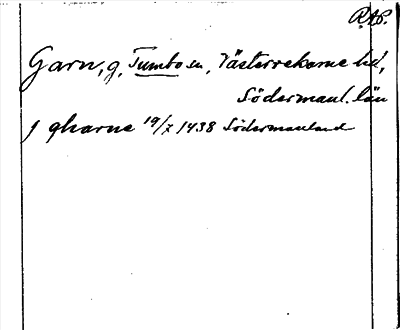 RAP.
Garn, g, Tumbo sn, Västerrekarne hd,
Södermanl. län
j gharne 19/7 1438 Södermanland